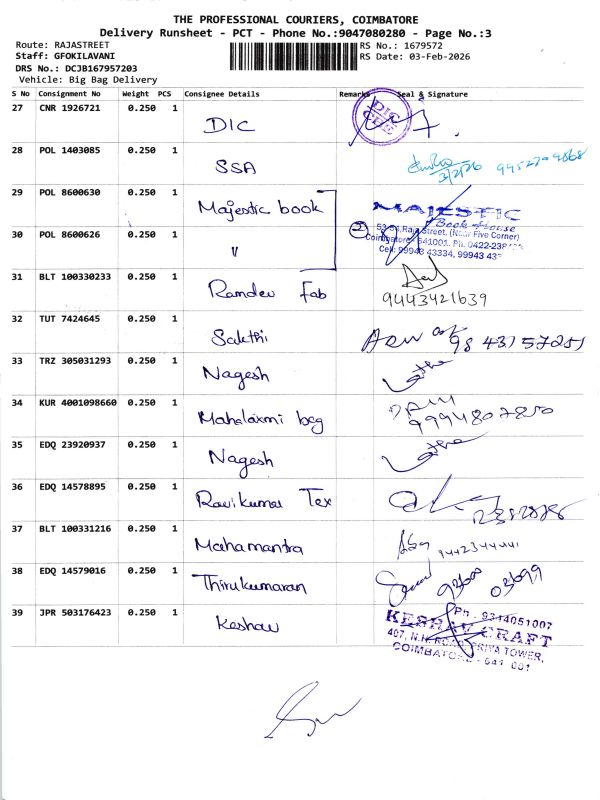 THE PROFESSIONAL COURIERS, COIMBATORE
Delivery Runsheet - PCT - Phone No.:9047080280 - Page No.:3
Route: RAJASTREET
Staff: GFOKILAVANI
DRS No.: DCJB167957203
Vehicle: Big Bag Delivery
RS No.: 1679572
RS Date: 03-Feb-2026
S No Consignment No Weight PCS Consignee Details Remarks Seal & Signature
27 CNR 1926721 0.250 1 DIC
28 POL 1403085 0.250 1 SSA 3/2/26 9952709868
29 POL 8600630 0.250 1 Majestic book MAJESTIC
Book House
30 POL 8600626 0.250 1 " 2 Raja Street, (Near Five Corner)
Coimbatore 641001. Ph. 0422-238
Cell: 99943 43334, 99943 43
31 BLT 100330233 0.250 1 Ramdev Fab
9443421639
32 TUT 7424645 0.250 1 Sakthi
33 TRZ 305031293 0.250 1 Nagesh
34 KUR 4001098660 0.250 1 Mahalaxmi bag 9994807850
35 EDQ 23920937 0.250 1 Nagesh
36 EDQ 14578895 0.250 1 Ravikumar Tex
37 BLT 100331216 0.250 1 Mahamantra
38 EDQ 14579016 0.250 1 Thirukumaran
39 JPR 503176423 0.250 1 Keshav Ph : 9314051007
KESHAV CRAFT
407, N.H. ROAD, PRIYA TOWER,
COIMBATORE - 641 001